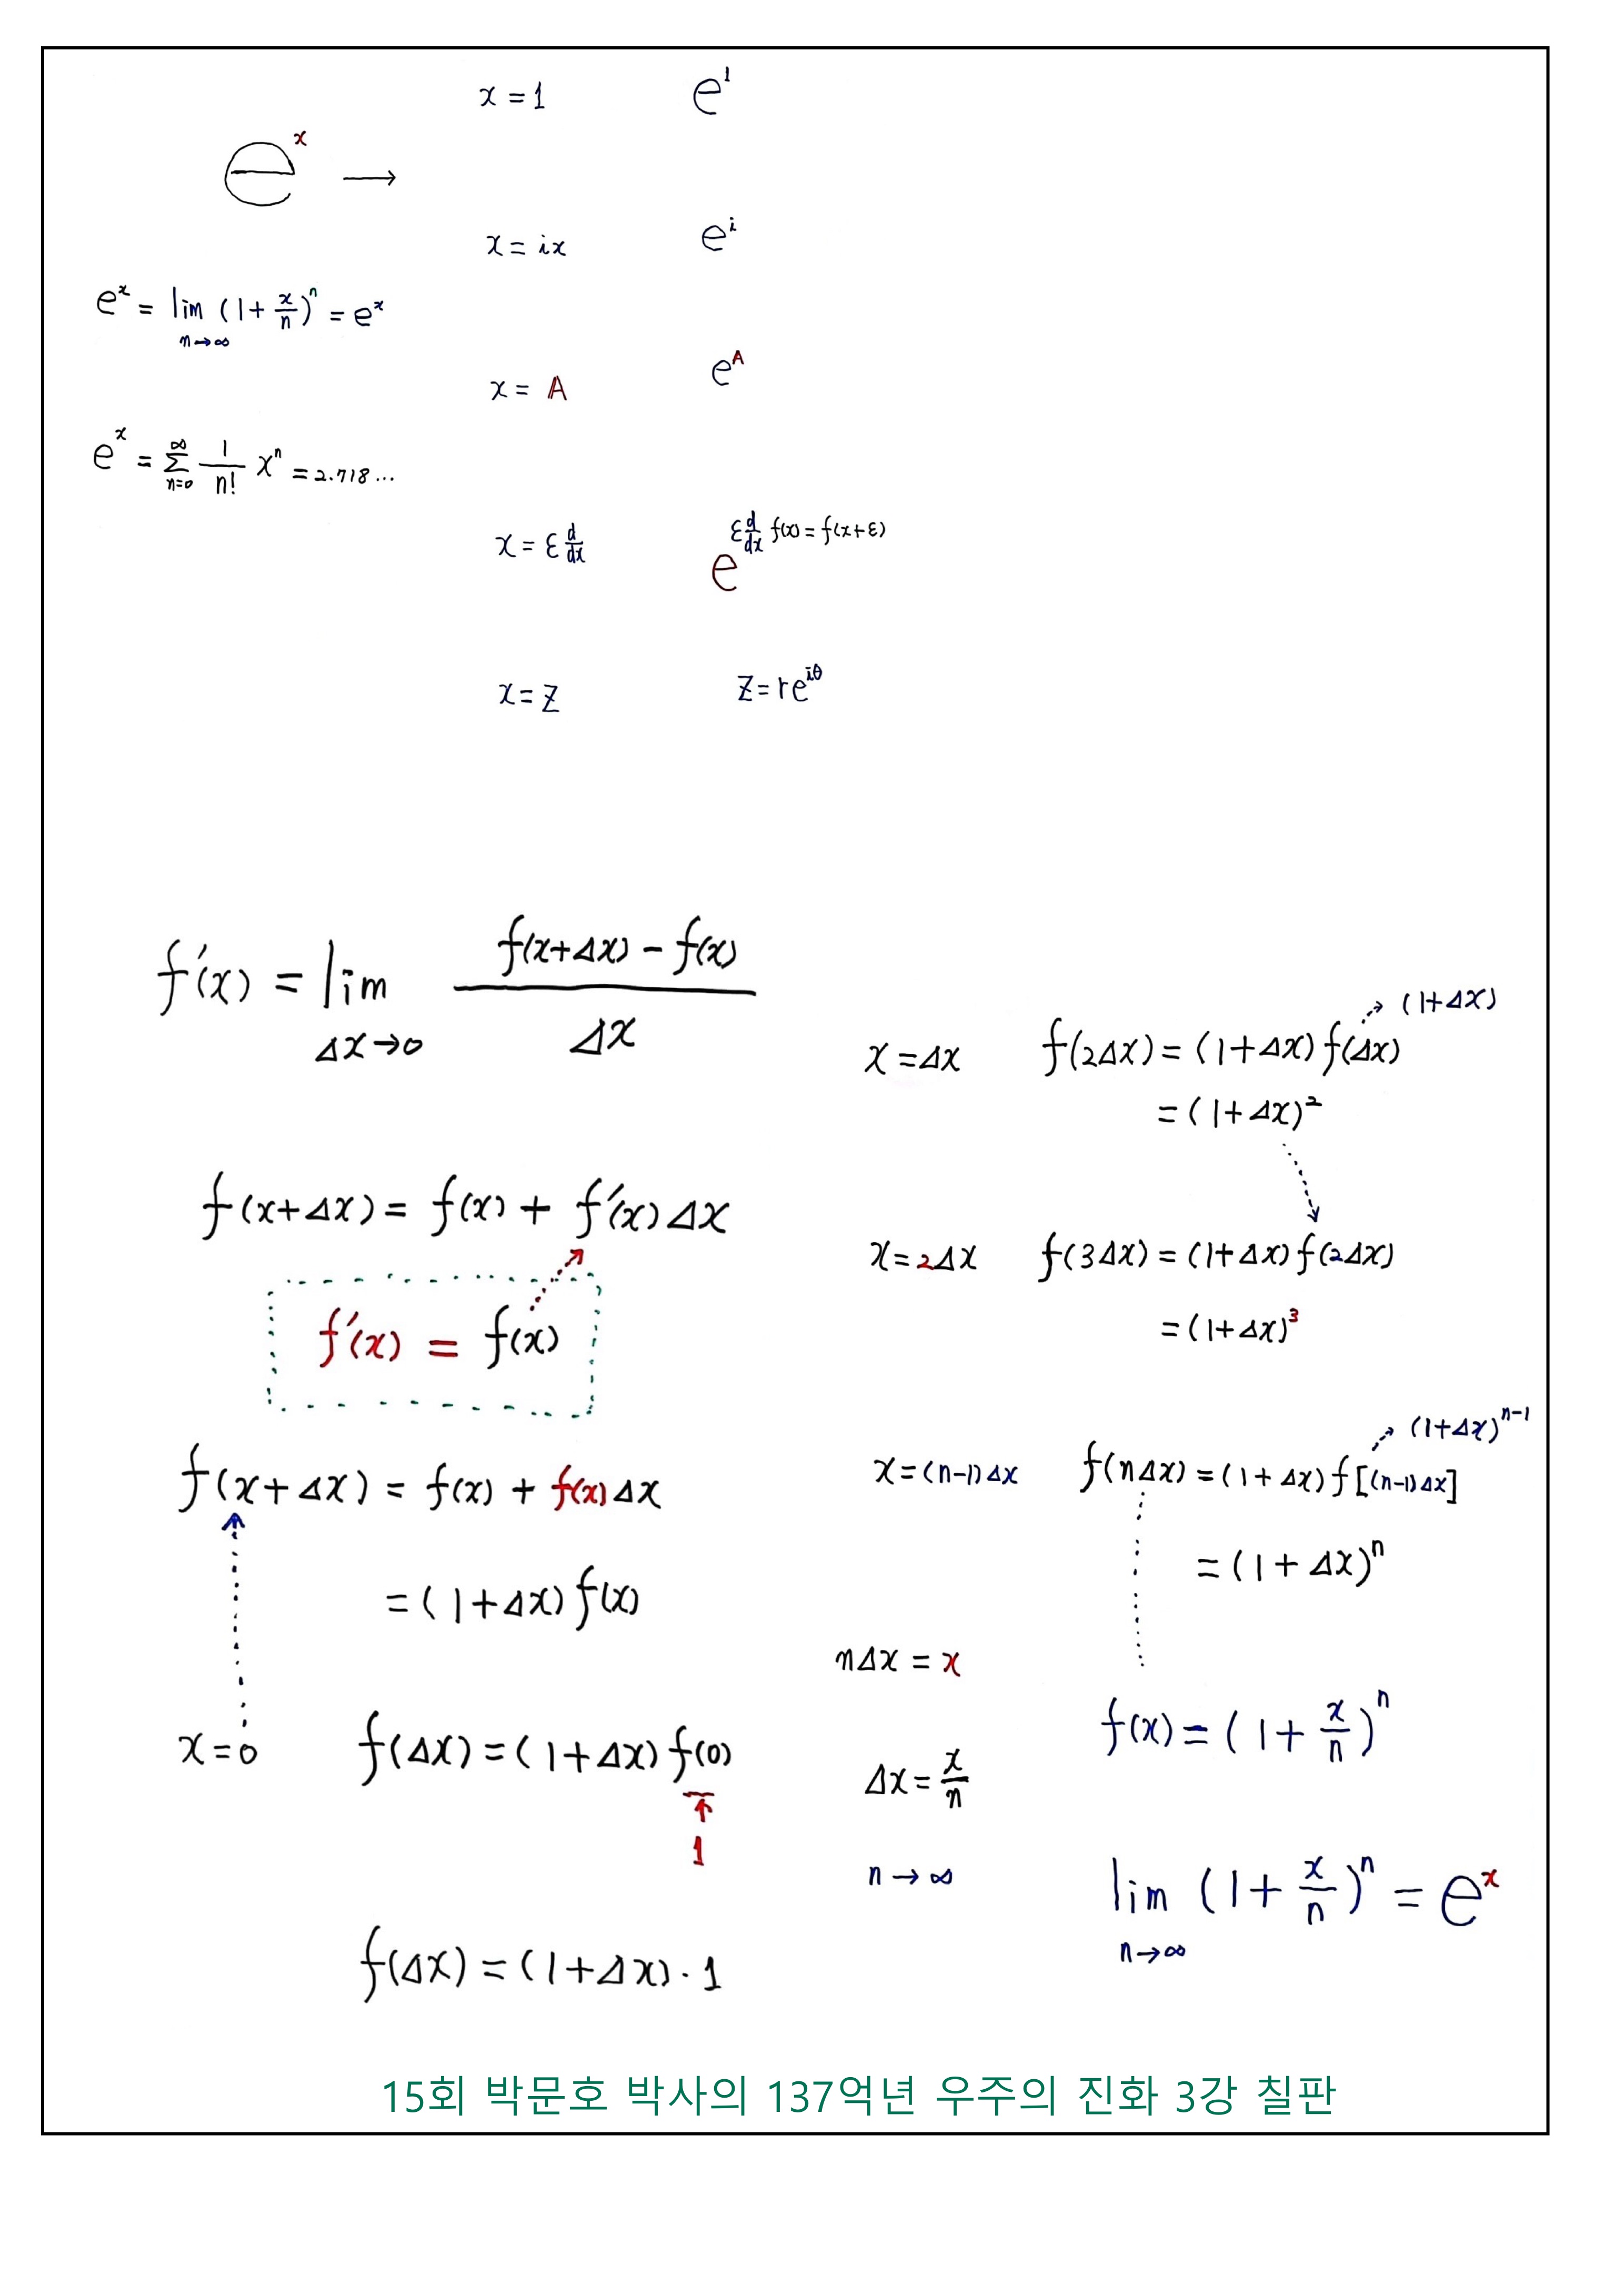 x = 1 e^1
e^x →
x = ix e^i
e^x = lim (1 + x/n)^n = e^x
n→∞
x = A e^A
e^x = ∑_{n=0}^{∞} 1/n! x^n = 2.718...
x = ε d/dx e^{ε d/dx f(x) = f(x+ε)}
x = Z Z = re^{iθ}
f'(x) = lim_{Δx→0} (f(x+Δx) − f(x))/Δx
f(x+Δx) = f(x) + f'(x)Δx
f'(x) = f(x)
f(x+Δx) = f(x) + f(x)Δx
= (1+Δx) f(x)
x = 0 f(Δx) = (1+Δx) f(0)
↑
1
f(Δx) = (1+Δx)·1
(1+Δx)
x = Δx f(2Δx) = (1+Δx) f(Δx)
= (1+Δx)^2
x = 2Δx f(3Δx) = (1+Δx) f(2Δx)
= (1+Δx)^3
(1+Δx)^{n−1}
x = (n−1)Δx f(nΔx) = (1+Δx) f[(n−1)Δx]
= (1+Δx)^n
nΔx = x
f(x) = (1 + x/n)^n
Δx = x/n
n → ∞ lim_{n→∞} (1 + x/n)^n = e^x
15회 박문호 박사의 137억년 우주의 진화 3강 칠판